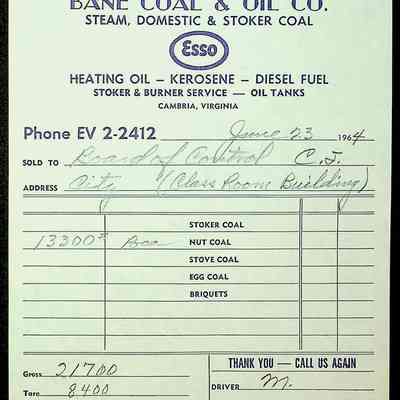 BANE COAL & OIL CO.
STEAM, DOMESTIC & STOKER COAL
Esso
HEATING OIL — KEROSENE — DIESEL FUEL
STOKER & BURNER SERVICE — OIL TANKS
CAMBRIA, VIRGINIA
Phone EV 2-2412 June 23 1964
SOLD TO Board of Control C. I.
ADDRESS City (Class Room Building)
STOKER COAL
13300# NUT COAL
STOVE COAL
EGG COAL
BRIQUETS
Gross 21700 THANK YOU — CALL US AGAIN
Tare 8400 DRIVER M.